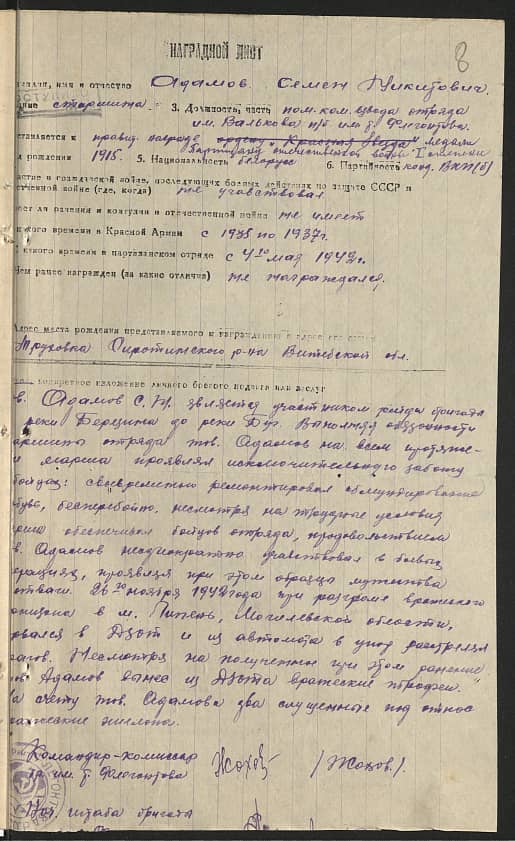 8
НАГРАДНОЙ ЛИСТ
имя и отчество Адамов Семен Никитович.
старшина 3. Должность, часть пом. ком. взвода отряда
им. Валькова п/б им т. Флегонтова.
к правит. награде ордену "Красная Звезда" медали
Партизану отечественной войны I степени
рождения 1915. 5. Национальность беларус 6. Партийность канд. ВКП(б)
гражданской войне, последующих боевых действиях по защите СССР и
отечественной войне (где, когда) не участвовал
ли ранения и контузии в отечественной войне не имеет
какого времени в Красной Армии с 1935 по 1937 г.
какого времени в партизанском отряде с 4го мая 1942 г.
Чем ранее награжден (за какие отличия) не награждался.
Адрес места рождения представляемого к награждению и адрес его семьи
Труховка Сиротинского р-на Витебской обл.
конкретное изложение личного боевого подвига или заслуг
в. Адамов С.Н. является участником рейда бригады
реки Березина до реки Буг. Выполняя обязанности
аршины отряда тов. Адамов на всем протяже-
и марша проявлял исключительную заботу
бойцах: своевременно ремонтировал обмундирование
бувь, бесперебойно, несмотря на трудные условия
обеспечивал бойцов отряда, продовольствием
в. Адамов неоднократно участвовал в боевых
ерациях, проявляя при этом образцы мужества
отваги. 26го ноября 1942 года при разгроме вражеского
рнизона в м. Липень, Могилевской области,
рвался в Дзот и из автомата в упор расстрелял
рагов. Несмотря на полученное при этом ранение
ов. Адамов вынес из Дзота вражеские трофеи.
На счету тов. Адамова два спущенные под откос
ражеские эшелона.
Командир-комиссар
бр им. т. Флегонтова Жохов /Жохов./
Нач. штаба бригады